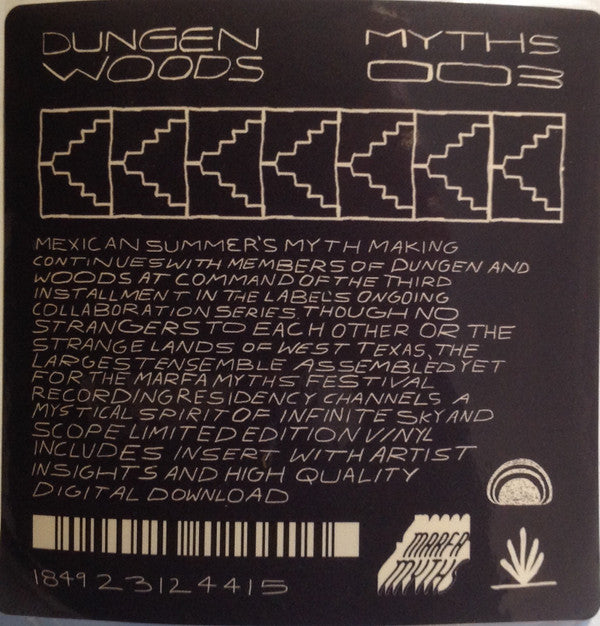 DUNGEN
WOODS
MYTHS
003
MEXICAN SUMMER'S MYTH MAKING
CONTINUES WITH MEMBERS OF DUNGEN AND
WOODS AT COMMAND OF THE THIRD
INSTALLMENT IN THE LABEL'S ONGOING
COLLABORATION SERIES, THOUGH NO
STRANGERS TO EACH OTHER OR THE
STRANGE LANDS OF WEST TEXAS, THE
LARGEST ENSEMBLE ASSEMBLED YET
FOR THE MARFA MYTHS FESTIVAL
RECORDING RESIDENCY CHANNELS A
MYSTICAL SPIRIT OF INFINITE SKY AND
SCOPE LIMITED EDITION VINYL
INCLUDES INSERT WITH ARTIST
INSIGHTS AND HIGH QUALITY
DIGITAL DOWNLOAD
MARFA
MYTHS
184923124415